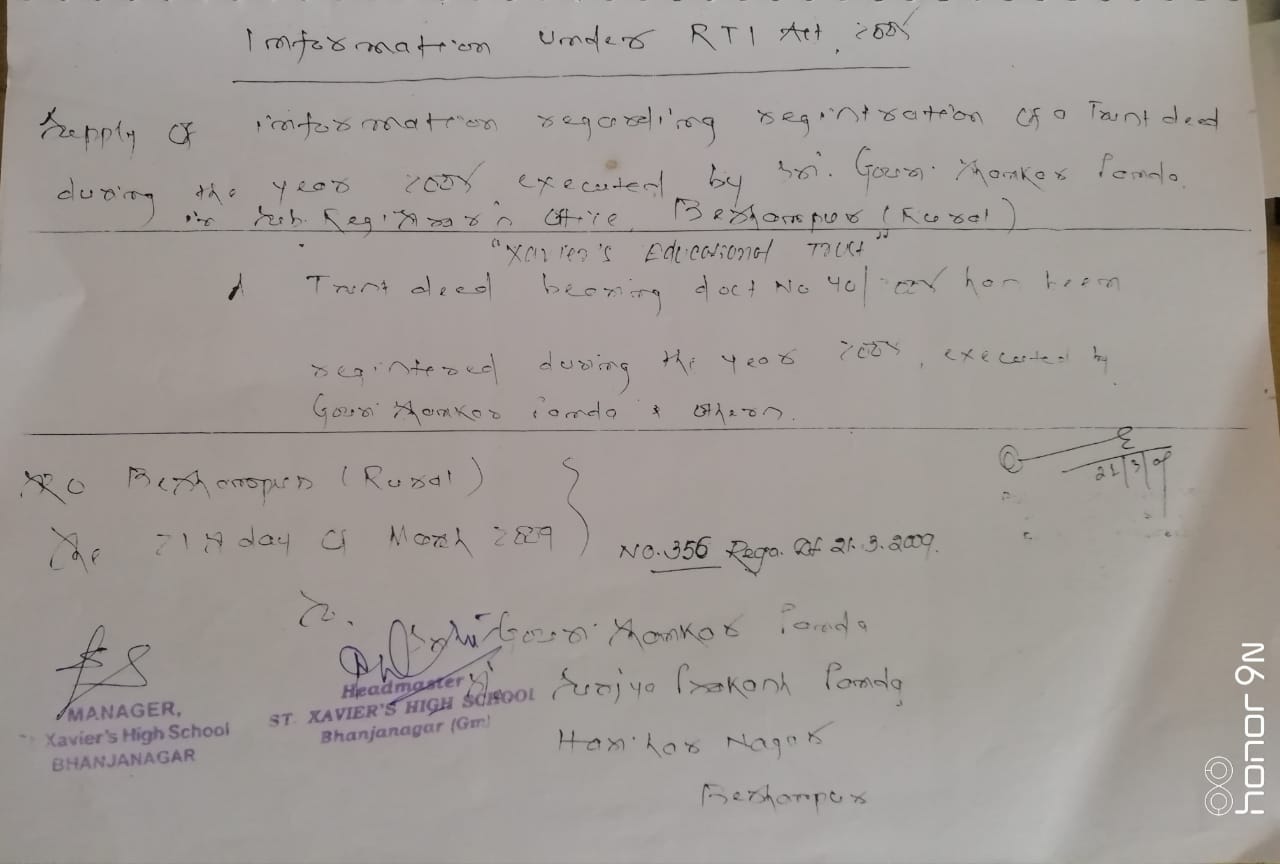 Information Under RTI Act, 2005
Supply of information regarding registration of a Trust deed
during the year 2008 executed by Sri. Gouri Shankar Panda
in Sub. Registrar's Office, Berhampur (Rural)
"Xavier's Educational Trust"
1 Trust deed bearing doct No 40/2008 has been
registered during the year 2008, executed by
Gouri Shankar Panda & Others.
21/3/09
SRO Berhampur (Rural)
The 21st day of March 2009
No. 356 Rega. Dt 21.3.2009.
To.
Sri Gouri Shankar Panda
Surjya Prakash Panda
Harihar Nagar
Berhampur
MANAGER,
Xavier's High School
BHANJANAGAR
Headmaster
ST. XAVIER'S HIGH SCHOOL
Bhanjanagar (Gm)
honor 9N